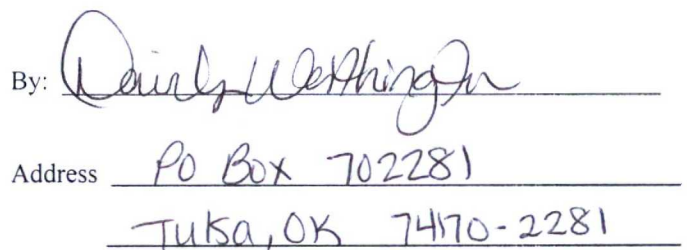 By: Worthington
Address PO Box 702281
Tulsa, OK 74170-2281